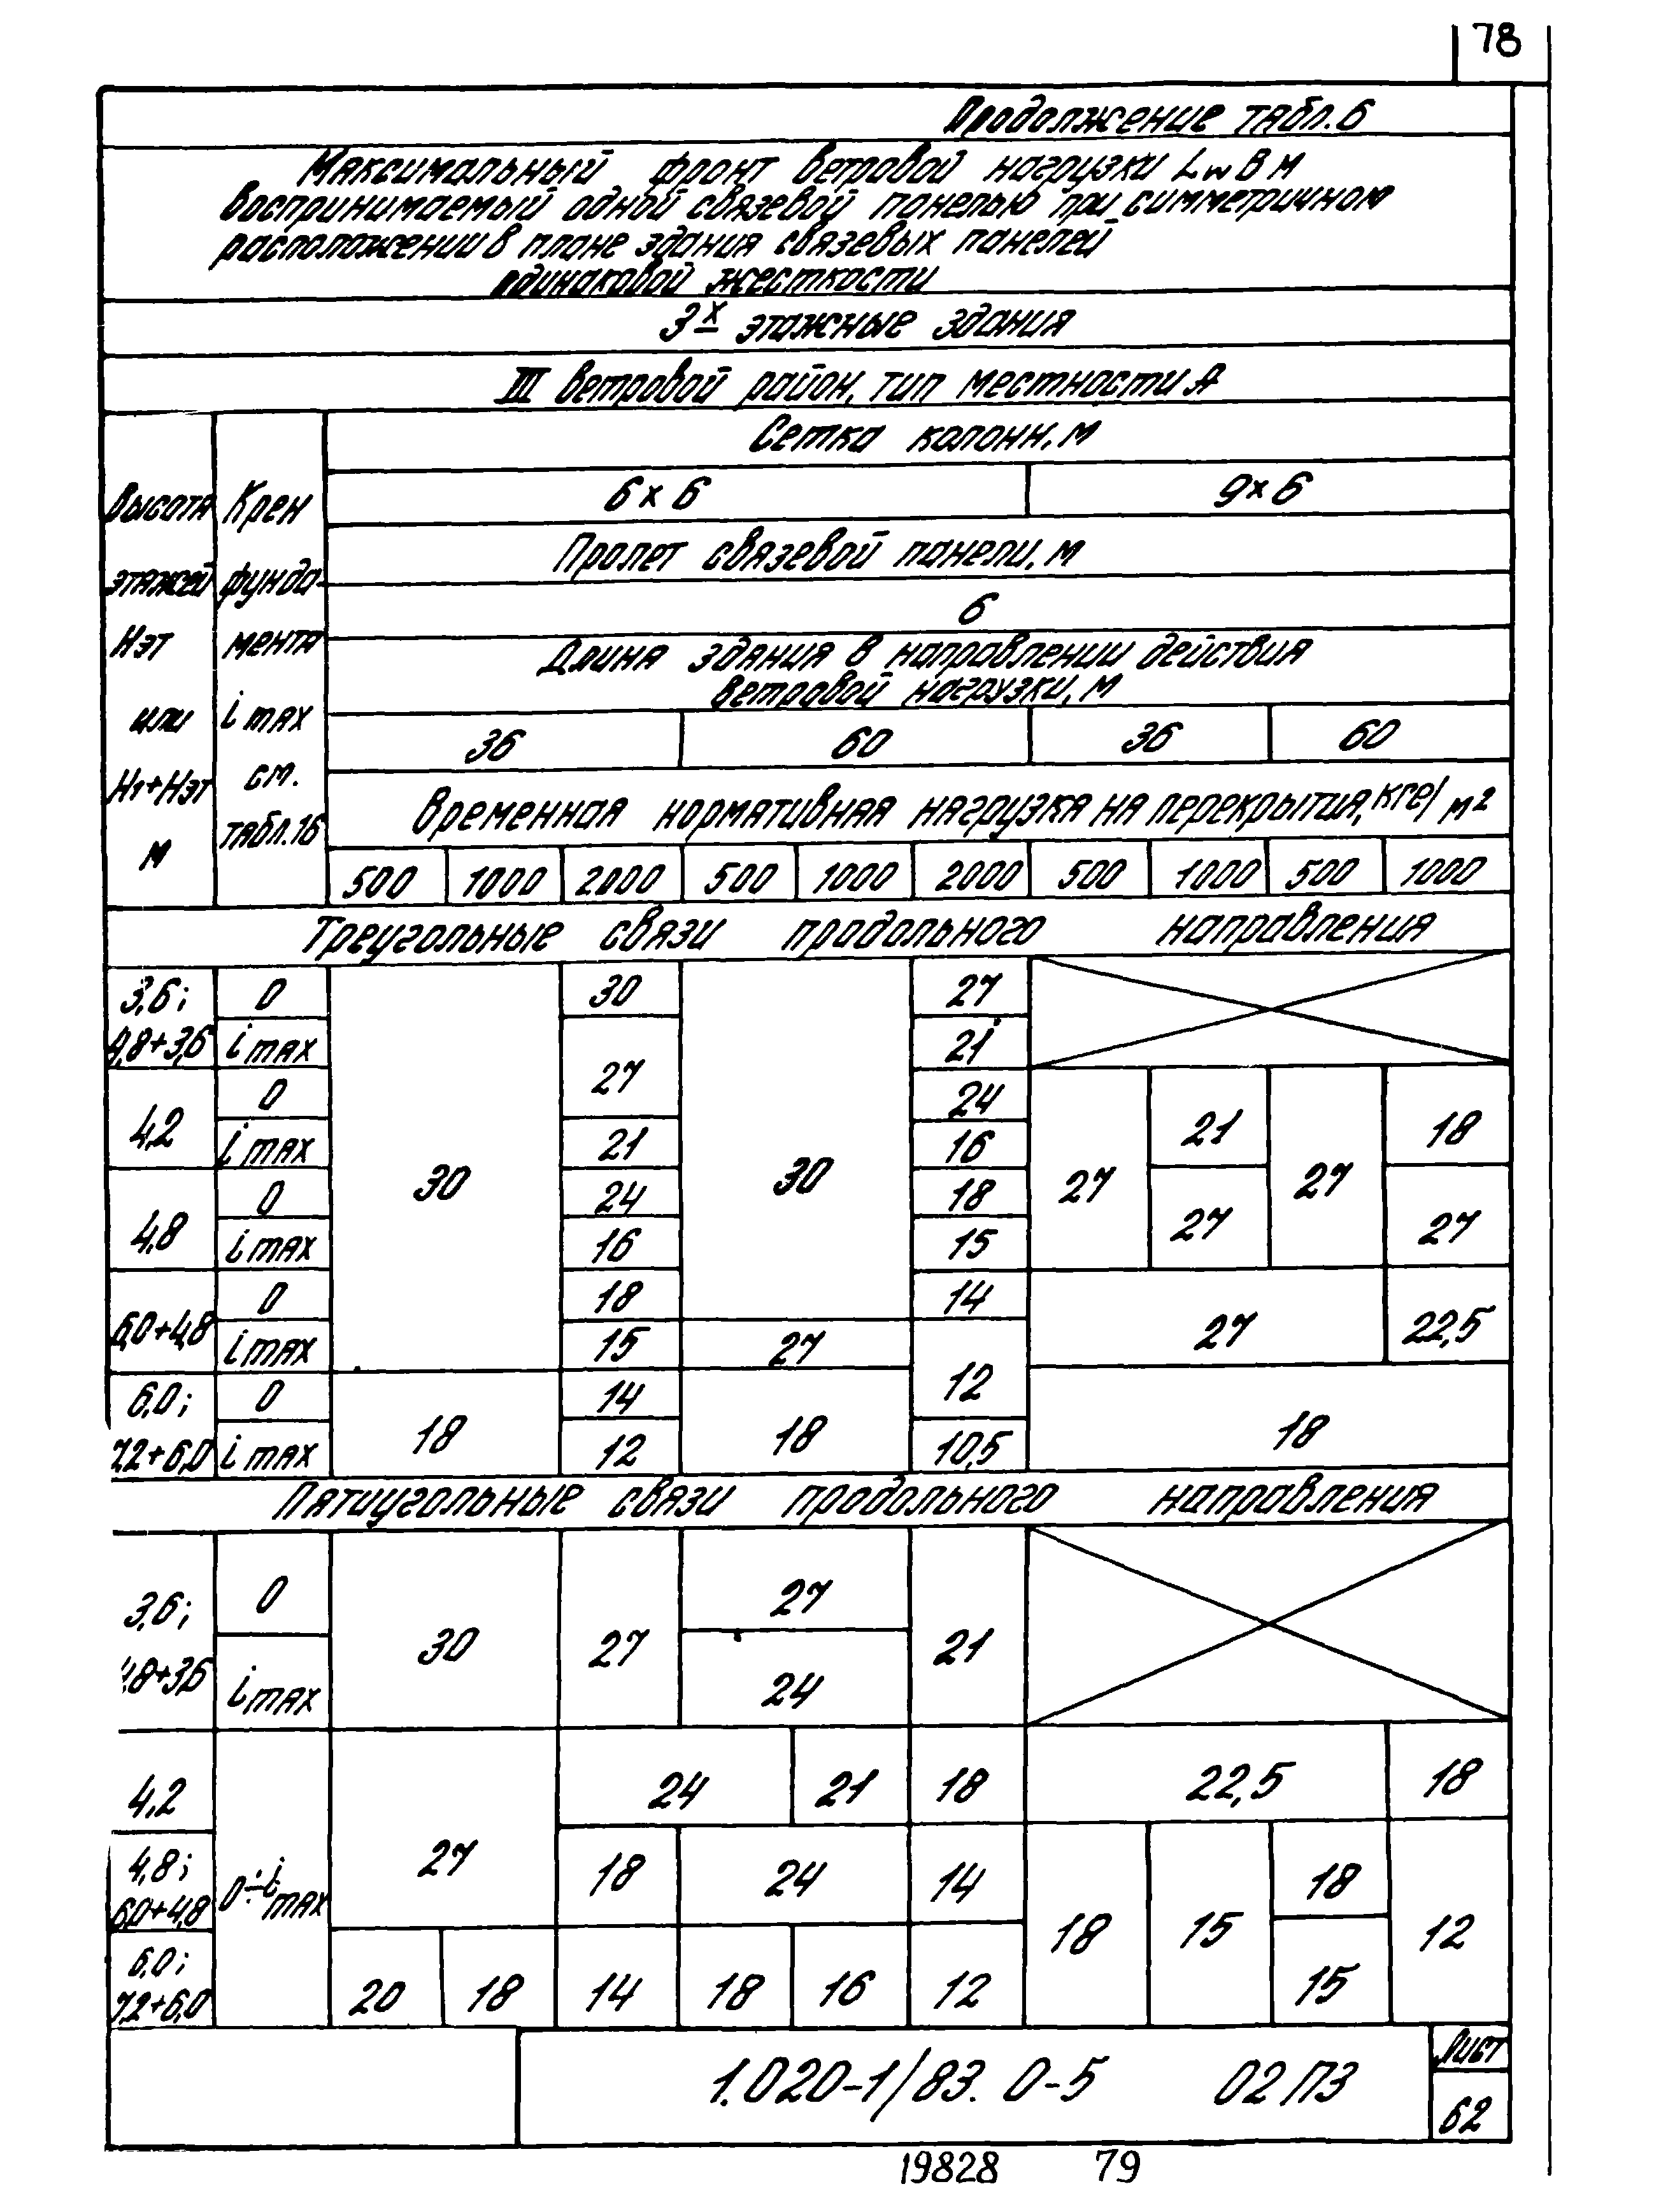 78
Продолжение табл. 6
Максимальный фронт ветровой нагрузки Lw в м
воспринимаемый одной связевой панелью при симметричном
расположении в плане здания связевых панелей
одинаковой жесткости
3х этажные здания
III ветровой район, тип местности А
Высота этажей Нэт или Н1+Нэт м
Крен фунда-мента i max см. табл.16
Сетка колонн, м
6 x 6 9 x 6
Пролет связевой панели, м
6
Длина здания в направлении действия
ветровой нагрузки, м
36 60 36 60
Временная нормативная нагрузка на перекрытия, кгс/м²
500 1000 2000 500 1000 2000 500 1000 500 1000
Треугольные связи продольного направления
3,6; 0 30 27
4,8+3,6 i max 21
0 27 24
4,2 21 18
i max 21 16
30 30 27 27
0 24 18
4,8 27 27
i max 16 15
0 18 14
6,0+4,8 27 22,5
i max 15 27
6,0; 0 14 12
18 18 18
7,2+6,0 i max 12 10,5
Пятиугольные связи продольного направления
0 27
3,6; 30 27 21
4,8+3,6 i max 24
4,2 24 21 18 22,5 18
0÷i max 27
4,8; 18 24 14 18
6,0+4,8 18 15 12
6,0; 20 18 14 18 16 12 15
7,2+6,0
1.020-1/83. 0-5 02 ПЗ
Лист
62
19828 79